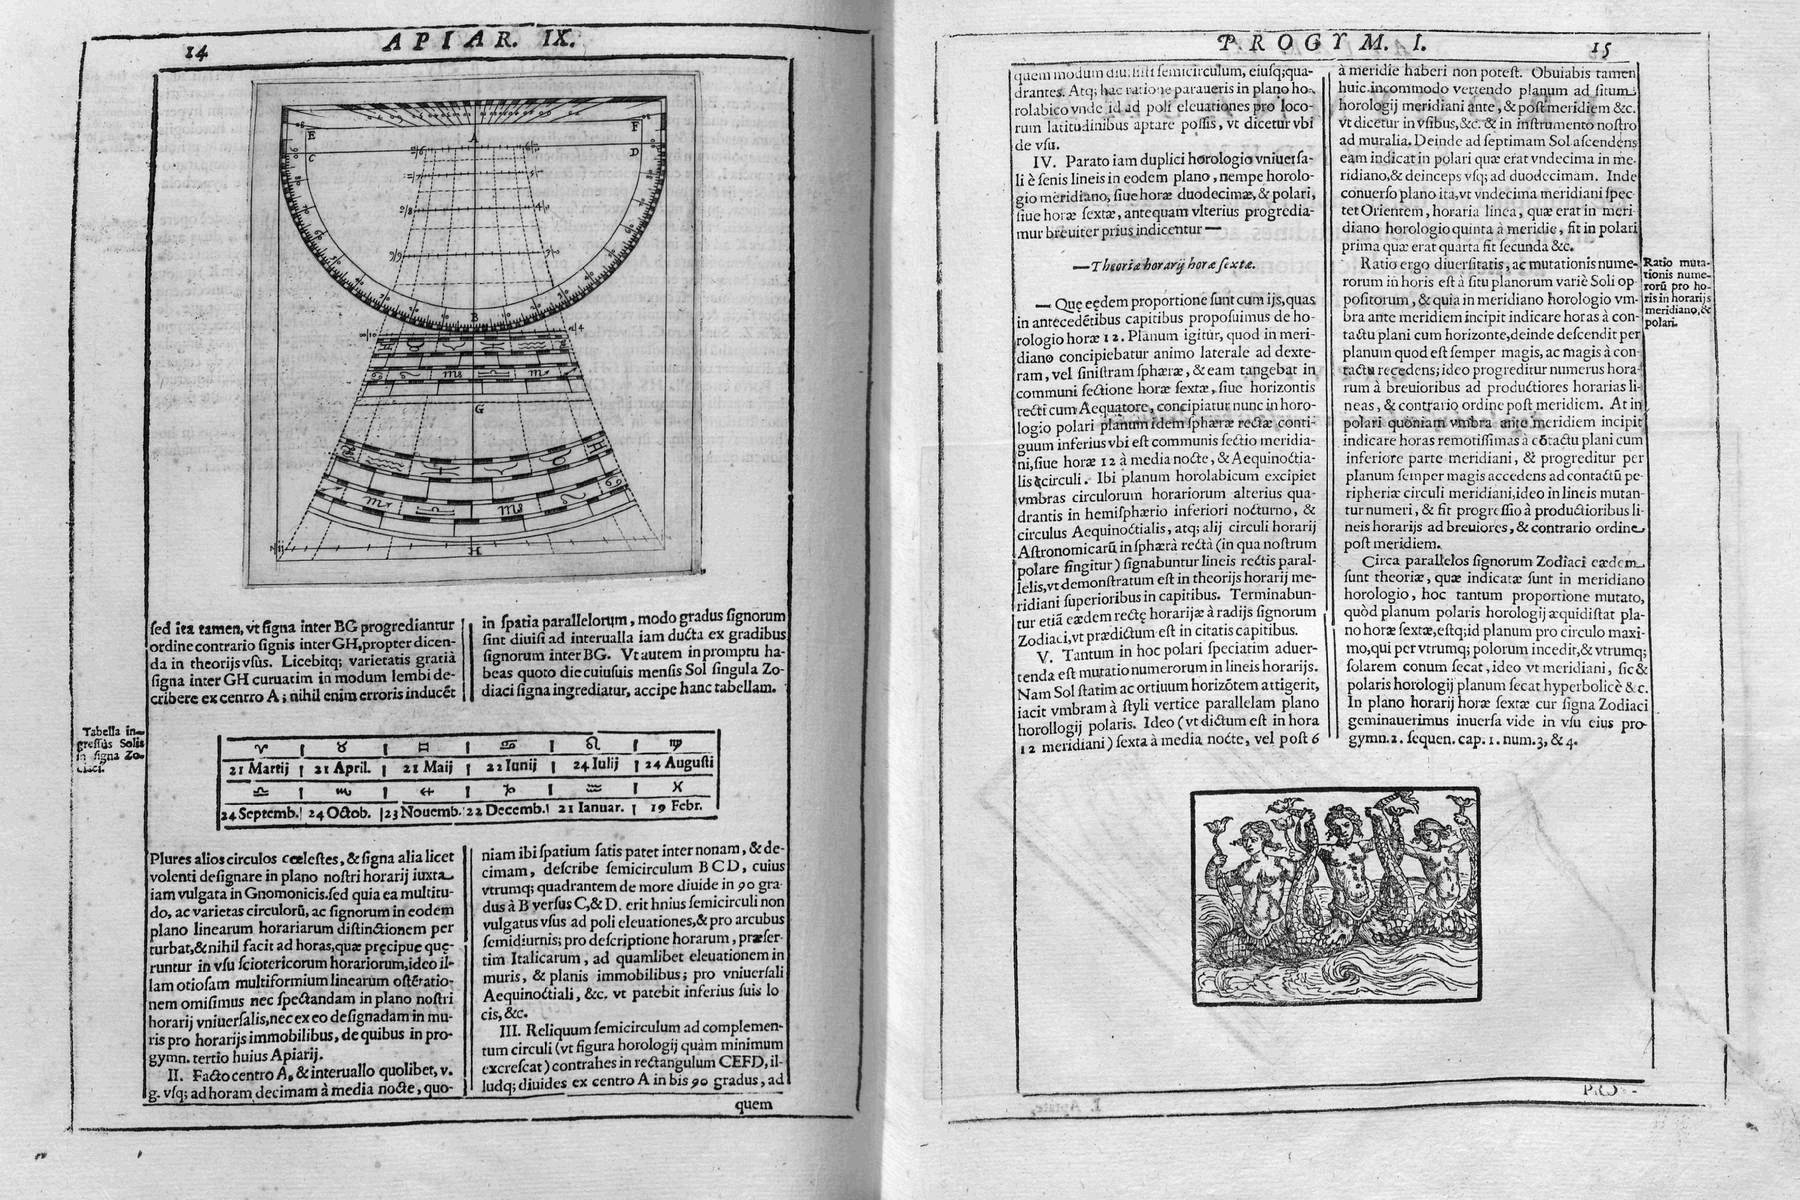 14
APIAR. IX.
E
A
F
C
D
B
G
H
sed ita tamen, vt signa inter BG progrediantur
ordine contrario signis inter GH, propter dicen-
da in theorijs vsus. Licebitq; varietatis gratiâ
signa inter GH curuatim in modum lembi de-
cribere ex centro A; nihil enim erroris inducēt
in spatia parallelorum, modo gradus signorum
sint diuisi ad interualla iam ducta ex gradibus
signorum inter BG. Vt autem in promptu ha-
beas quoto die cuiusuis mensis Sol singula Zo-
diaci signa ingrediatur, accipe hanc tabellam.
Tabella in-
gressus Solis
in signa Zo-
diaci.
♈ ♉ ♊ ♋ ♌ ♍
21 Martij 21 April. 21 Maij 22 Iunij 24 Iulij 24 Augusti
♎ ♏ ♐ ♑ ♒ ♓
24 Septemb. 24 Octob. 23 Nouemb. 22 Decemb. 21 Ianuar. 19 Febr.
Plures alios circulos cœlestes, & signa alia licet
volenti designare in plano nostri horarij iuxta
iam vulgata in Gnomonicis. sed quia ea multitu-
do, ac varietas circulorū, ac signorum in eodem
plano linearum horariarum distinctionem per
turbat, & nihil facit ad horas, quæ pręcipue quę-
runtur in vsu sciotericorum horariorum, ideo il-
lam otiosam multiformium linearum ostētatio-
nem omisimus nec spectandam in plano nostri
horarij vniuersalis, nec ex eo designadam in mu-
ris pro horarijs immobilibus, de quibus in pro-
gymn. tertio huius Apiarij.
II. Facto centro A, & interuallo quolibet, v.
g. vsq; ad horam decimam à media nocte, quo-
niam ibi spatium satis patet inter nonam, & de-
cimam, describe semicirculum BCD, cuius
vtrumq; quadrantem de more diuide in 90 gra-
dus à B versus C, & D. erit hnius semicirculi non
vulgatus vsus ad poli eleuationes, & pro arcubus
semidiurnis; pro descriptione horarum, præser-
tim Italicarum, ad quamlibet eleuationem in
muris, & planis immobilibus; pro vniuersali
Aequinoctiali, &c. vt patebit inferius suis lo
cis, &c.
III. Reliquum semicirculum ad complemen-
tum circuli (vt figura horologij quàm minimum
excrescat) contrahes in rectangulum CEFD, il-
ludq; diuides ex centro A in bis 90 gradus, ad
quem
PROGYM. I.
15
quem modum diuisisti semicirculum, eiusq; qua-
drantes. Atq; hac ratione paraueris in plano ho-
rolabico vnde id ad poli eleuationes pro loco-
rum latitudinibus aptare possis, vt dicetur vbi
de vsu.
IV. Parato iam duplici horologio vniuersa-
li è senis lineis in eodem plano, nempe horolo-
gio meridiano, siue horæ duodecimæ, & polari,
siue horæ sextæ, antequam vlterius progredia-
mur breuiter prius indicentur —
— Theoriæ horarij horæ sextæ.
— Quę eędem proportione sunt cum ijs, quas
in antecedētibus capitibus proposuimus de ho-
rologio horæ 12. Planum igitur, quod in meri-
diano concipiebatur animo laterale ad dexte-
ram, vel sinistram sphæræ, & eam tangebat in
communi sectione horæ sextæ, siue horizontis
recti cum Aequatore, concipiatur nunc in horo-
logio polari planum idem sphæræ rectæ conti-
guum inferius vbi est communis sectio meridia-
ni, siue horæ 12 à media nocte, & Aequinoctia-
lis circuli. Ibi planum horolabicum excipiet
vmbras circulorum horariorum alterius qua-
drantis in hemisphærio inferiori nocturno, &
circulus Aequinoctialis, atq; alij circuli horarij
Astronomicarū in sphærâ rectâ (in qua nostrum
polare fingitur) signabuntur lineis rectis paral-
lelis, vt demonstratum est in theorijs horarij me-
ridiani superioribus in capitibus. Terminabun-
tur etiā eædem rectę horarijæ à radijs signorum
Zodiaci, vt prædictum est in citatis capitibus.
V. Tantum in hoc polari speciatim aduer-
tenda est mutatio numerorum in lineis horarijs.
Nam Sol statim ac ortiuum horizōtem attigerit,
iacit vmbram à styli vertice parallelam plano
horollogij polaris. Ideo (vt dictum est in hora
12 meridiani) sexta à media nocte, vel post 6
à meridie haberi non potest. Obuiabis tamen
huic incommodo vertendo planum ad situm
horologij meridiani ante, & post meridiem &c.
vt dicetur in vsibus, &c. & in instrumento nostro
ad muralia. Deinde ad septimam Sol ascendens
eam indicat in polari quæ erat vndecima in me-
ridiano, & deinceps vsq; ad duodecimam. Inde
conuerso plano ita, vt vndecima meridiani spec-
tet Orientem, horaria linea, quæ erat in meri-
diano horologio quinta à meridie, fit in polari
prima quæ erat quarta fit secunda &c.
Ratio ergo diuersitatis, ac mutationis nume-
rorum in horis est à situ planorum variè Soli op-
positorum, & quia in meridiano horologio vm-
bra ante meridiem incipit indicare horas à con-
tactu plani cum horizonte, deinde descendit per
planum quod est semper magis, ac magis à con-
tactu recedens; ideo progreditur numerus hora-
rum à breuioribus ad productiores horarias li-
neas, & contrario ordine post meridiem. At in
polari quoniam vmbra ante meridiem incipit
indicare horas remotissimas à cōtactu plani cum
inferiore parte meridiani, & progreditur per
planum semper magis accedens ad contactū pe-
ripheriæ circuli meridiani, ideo in lineis mutan-
tur numeri, & fit progressio à productioribus li-
neis horarijs ad breuiores, & contrario ordine
post meridiem.
Circa parallelos signorum Zodiaci eædem
sunt theoriæ, quæ indicatæ sunt in meridiano
horologio, hoc tantum proportione mutato,
quòd planum polaris horologij æquidistat pla-
no horæ sextæ, estq; id planum pro circulo maxi-
mo, qui per vtrumq; polorum incedit, & vtrumq;
solarem conum secat, ideo vt meridiani, sic &
polaris horologij planum secat hyperbolicè &c.
In plano horarij horæ sextæ cur signa Zodiaci
geminauerimus inuersa vide in vsu eius pro-
gymn. 2. sequen. cap. 1. num. 3, & 4.
Ratio muta-
tionis nume-
rorū pro ho-
ris in horarijs
meridiano, &
polari.